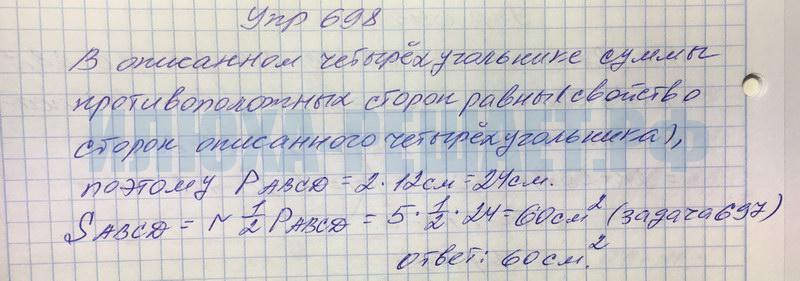 Упр 698
В описанном четырёхугольнике суммы
противоположных сторон равны (свойство
сторон описанного четырёхугольника),
поэтому P ABCD = 2 · 12см = 24см.
S ABCD = r 1/2 P ABCD = 5 · 1/2 · 24 = 60см² (задача 697)
ответ: 60см.²